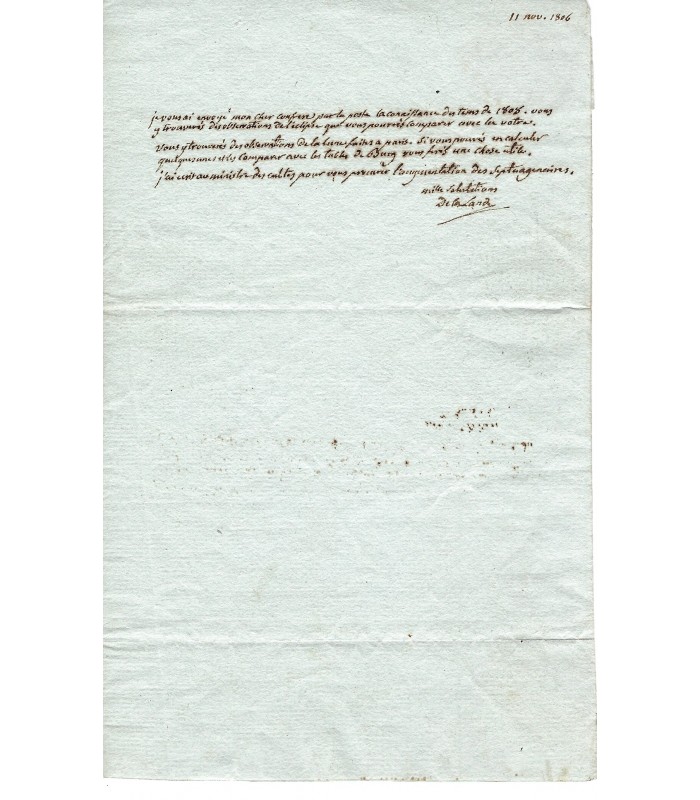 11 nov. 1806
je vous ai envoyé mon cher confrere par la poste la conoissance des tems de 1808. vous
y trouverés des observations de l'eclipse que vous pourrés comparer avec les votre.
vous y trouverés des observations de la lune faites a paris. si vous pouvés en calculer
quelques unes et les comparer avec les tables de Burg vous ferés une chose utile.
j'ai ecrit au ministre des cultes pour vous procurer l'augmentation des septuagenaires.
mille salutations
De la Lande